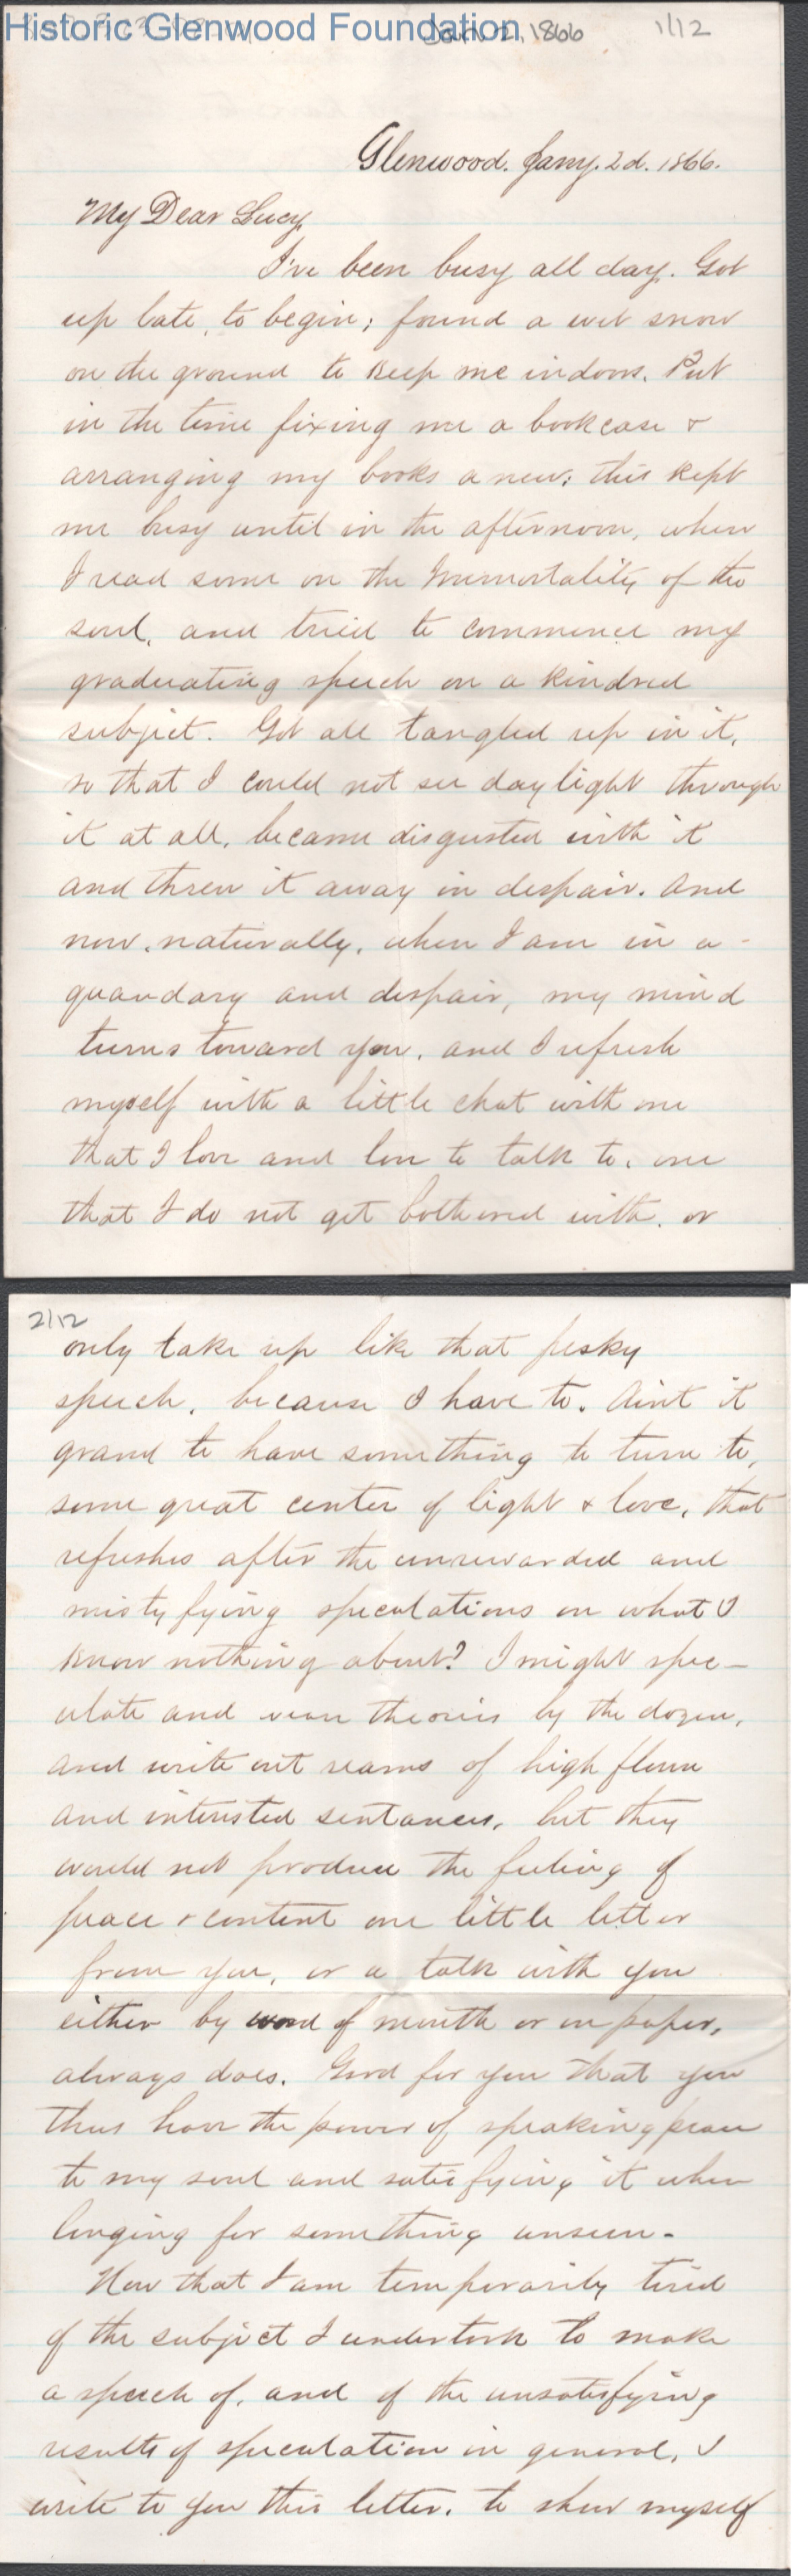 Historic Glenwood Foundation
Jan 2, 1866
1/12
Glenwood. Jany. 2d. 1866.
My Dear Lucy,
I've been busy all day. Got
up late, to begin; found a wet snow
on the ground to keep me indoors. Put
in the time fixing me a bookcase &
arranging my books anew; this kept
me busy until in the afternoon, when
I read some on the Immortality of the
soul, and tried to commence my
graduating speech on a kindred
subject. Got all tangled up in it,
so that I could not see daylight through
it at all, became disgusted with it
and threw it away in despair. And
now, naturally, when I am in a
quandary and despair, my mind
turns toward you, and I refresh
myself with a little chat with one
that I love and love to talk to, one
that I do not get bothered with, or
2/12
only take up like that pesky
speech, because I have to. Aint it
grand to have something to turn to,
some great center of light & love, that
refreshes after the unrewarded and
mistyfying speculations on what I
know nothing about? I might spec-
ulate and weave theories by the dozen,
and write out reams of high flown
and sentances, but they
would not produce the feeling of
peace & content one little letter
from you, or a talk with you
either by word of mouth or on paper,
always does. Good for you that you
thus have the power of speaking peace
to my soul and satisfying it when
longing for something unseen.
Now that I am temporarily tired
of the subject I undertook to make
a speech of, and of the unsatisfying
results of speculation in general, I
write to you this letter, to show myself